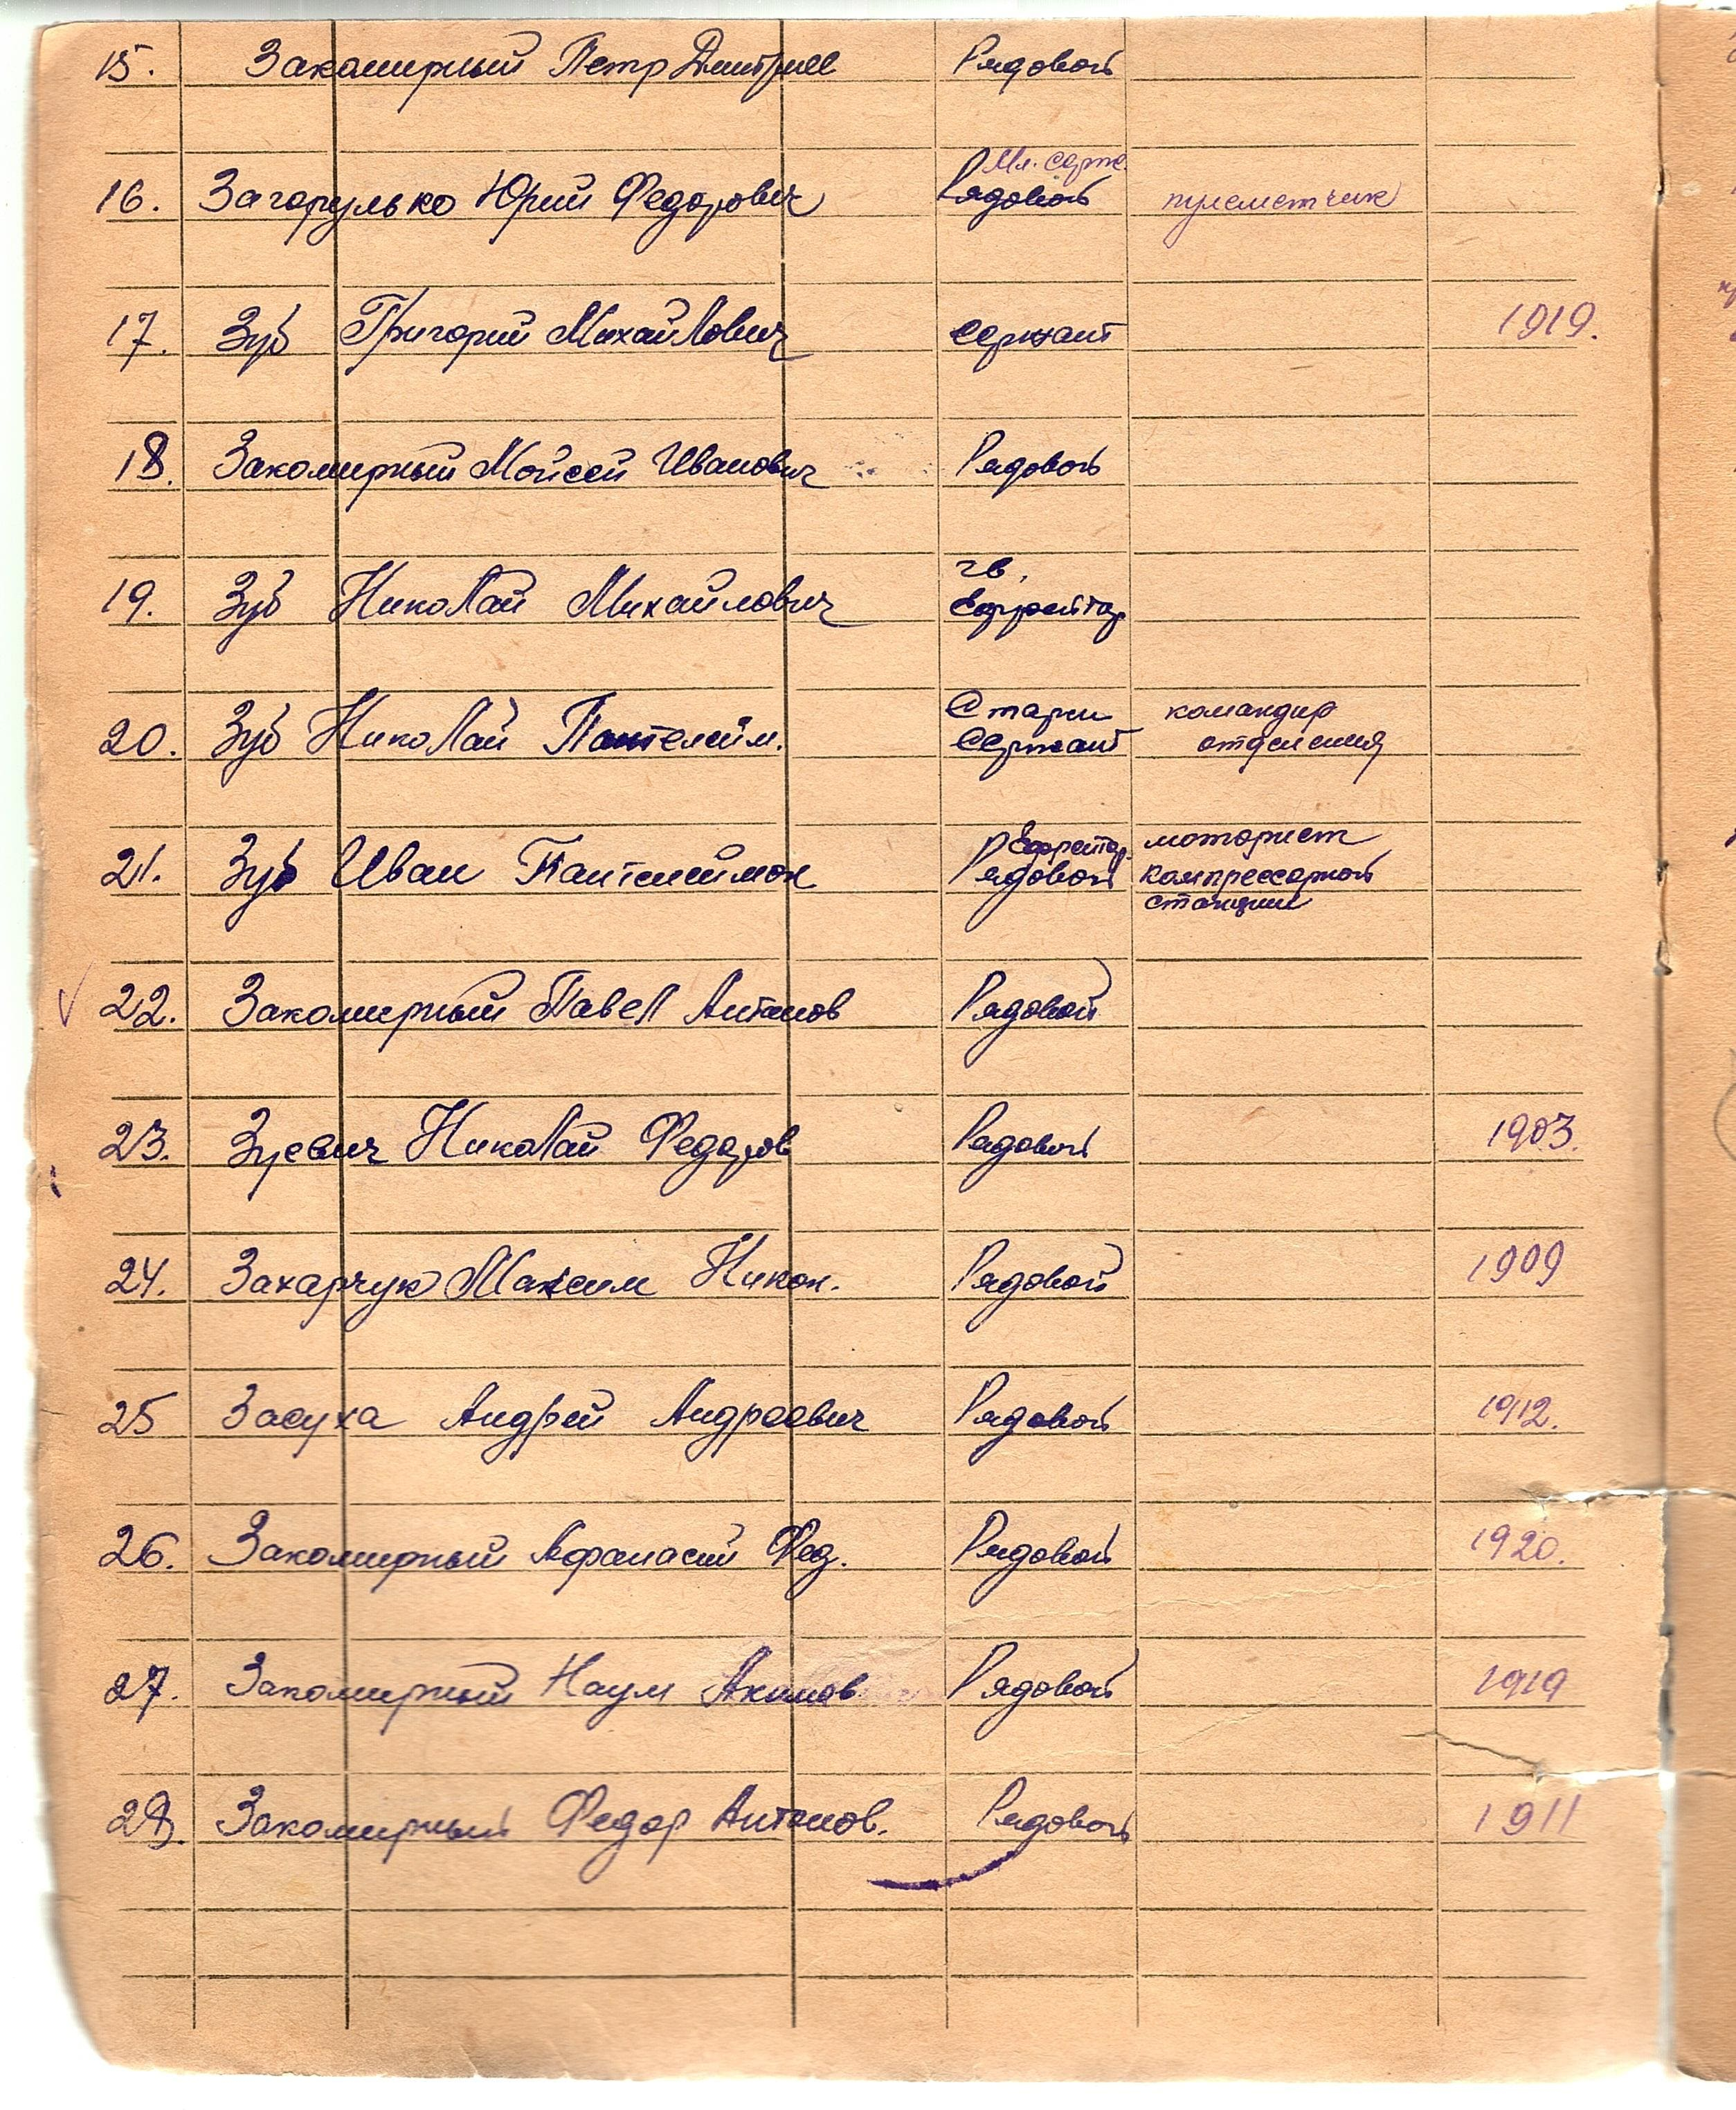 15. Закомирный Петр Дмитриев Рядовой
Мл. серж.
16. Загорулько Юрий Федорович Рядовой пулеметчик
17. Зуб Григорий Михайлович сержант 1919.
18. Закомирный Мойсей Иванович Рядовой
гв.
19. Зуб Николай Михайлович Ефрейтор
Старш командир
20. Зуб Николай Пантелейм. Сержант отделения
Ефрейтор моторист
21. Зуб Иван Пантелеймон Рядовой компрессорной
станции
22. Закомирный Павел Антонов Рядовой
23. Зуевич Николай Федоров Рядовой 1903.
24. Захарчук Максим Никон. Рядовой 1909
25 Засуха Андрей Андреевич Рядовой 1912.
26. Закомирный Афанасий Фед. Рядовой 1920.
27. Закомирный Наум Акимов Рядовой 1919
28. Закомирный Федор Антонов. Рядовой 1911